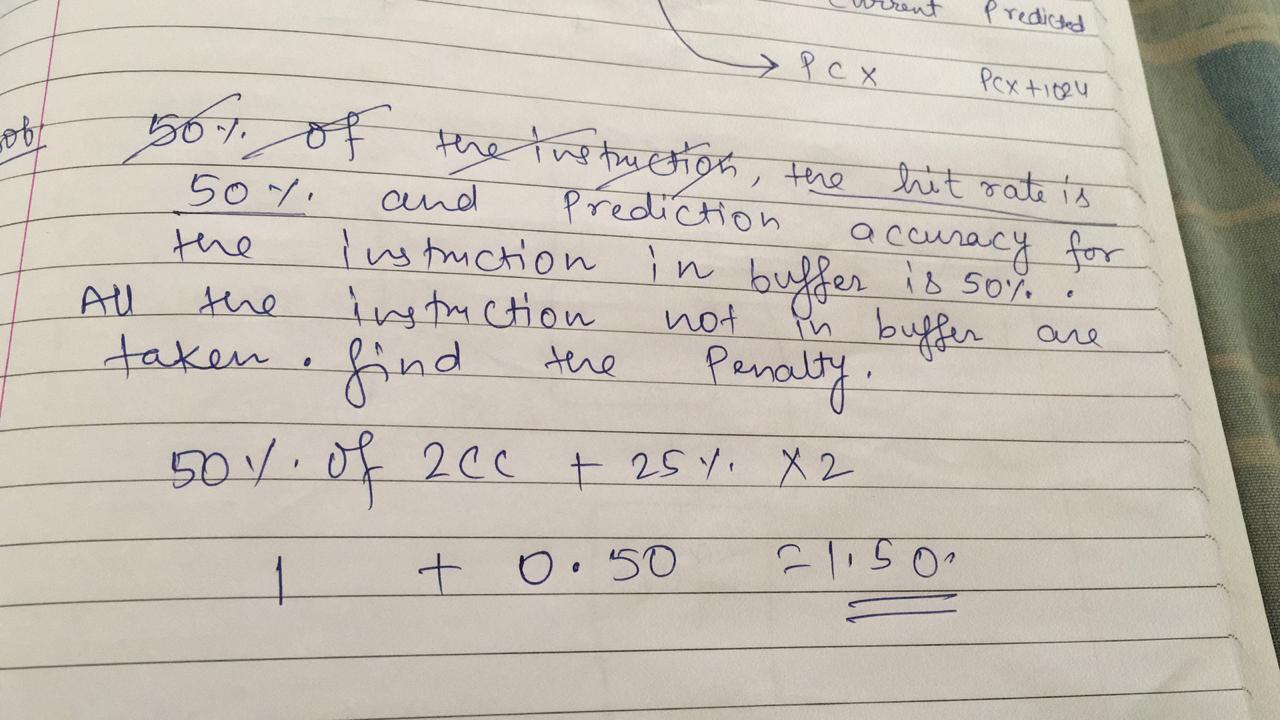 Current Predicted
PCX PCX+1024
50%. of the instruction, the hit rate is
50%. and Prediction accuracy for
the instruction in buffer is 50%.
All the instruction not in buffer are
taken. find the Penalty.
50%. of 2CC + 25%. X2
1 + 0.50 = 1.50.